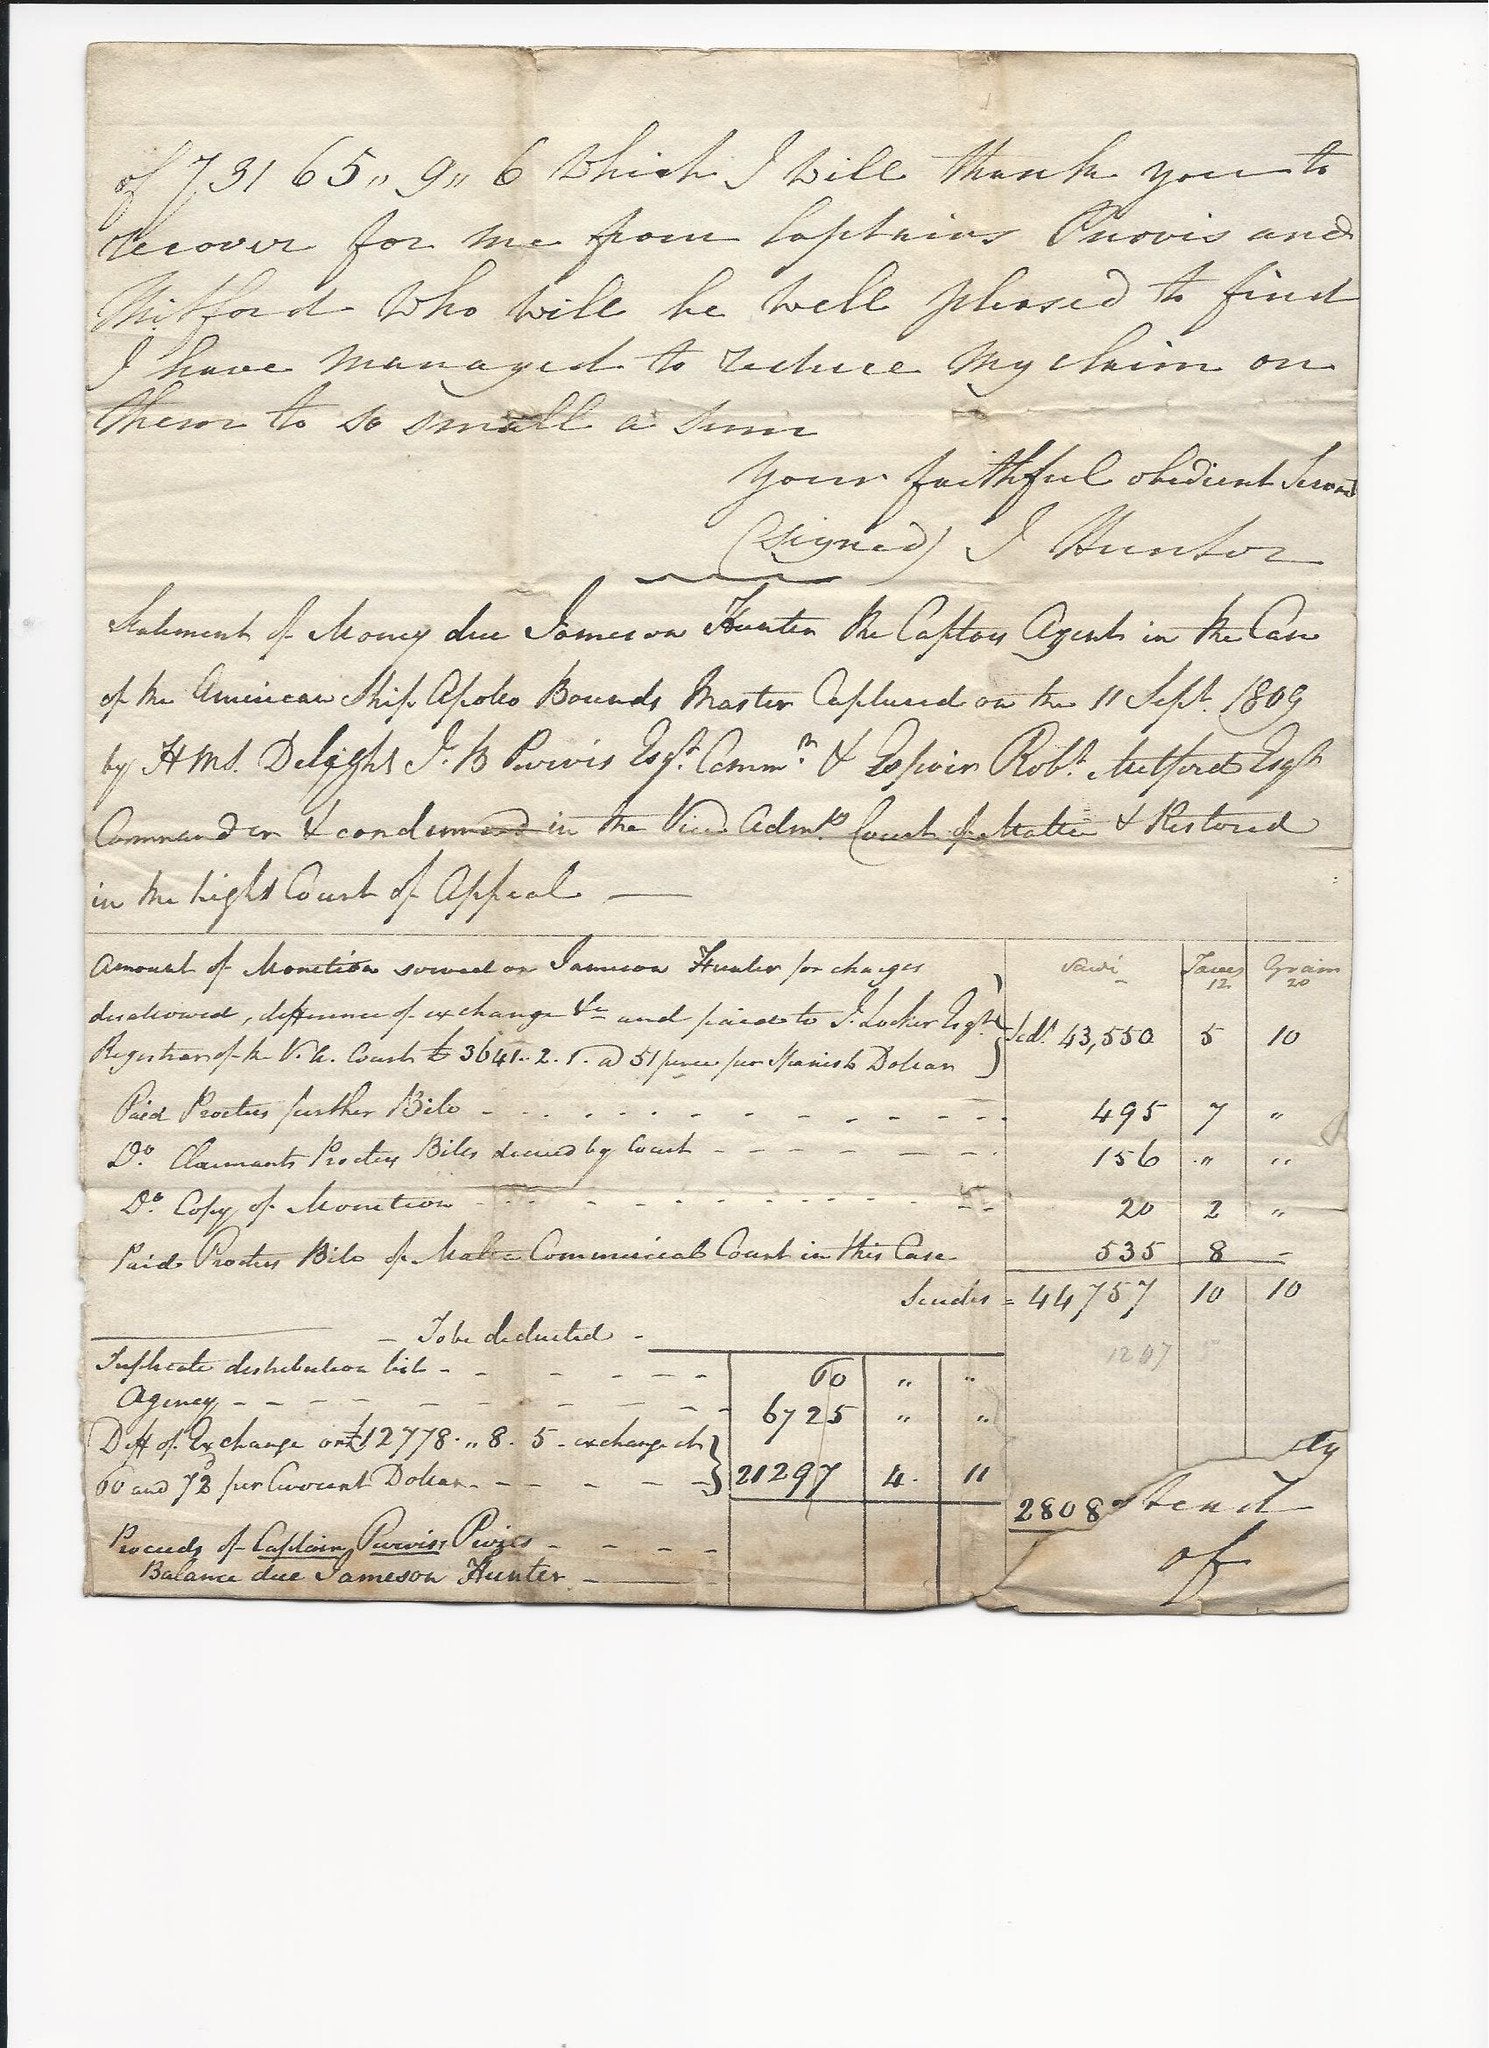 of 73165 " 9 " 6 which I will thank you to
recover for me from Captains Purvis and
Mitford who will be well pleased to find
I have managed to reduce my claim on
them to so small a sum
your faithful obedient Servant
(signed) J Hunter
Statement of Money due Jameson Hunter the Captors Agent in the Case
of the American Ship Apollo Bounds Master Captured on the 11 Sept. 1809
by HMS. Delight J. B Purvis Esqr. Commr. & Espoir Robt. Mitford Esqr
Commander & condemned in the Vice Admty Court of Malta & Restored
in the high Court of Appeal —
Scudi Taries 12 Grains 20
Amount of Monition served on Jameson Hunter for charges
disallowed, difference of exchange &c and paid to J. Locker Esqre
Registrar of the V. A. Court £ 3641.. 2. 1. @ 51 pence per Spanish Dollar Scd. 43,550 5 10
Paid Proctors further Bill - - - 495 7 "
Do. Claimants Proctors Bills decreed by Court - - - 156 " "
Do. Copy of Monition - - - 20 2 "
Paid Proctors Bill of Malta Commercial Court in this Case 535 8 -
Scudis = 44757 10 10
- To be deducted - 1207 5
Triplicate distribution list - - - 60 " "
Agency - - - 6725 " "
Diff of Exchange on £12778. " 8. 5 - exchange at
60 and 72 per Current Dollar - - - 21297 4. 11
2808 stend
Proceeds of Captain Purvis's Prizes - - - of
Balance due Jameson Hunter - —